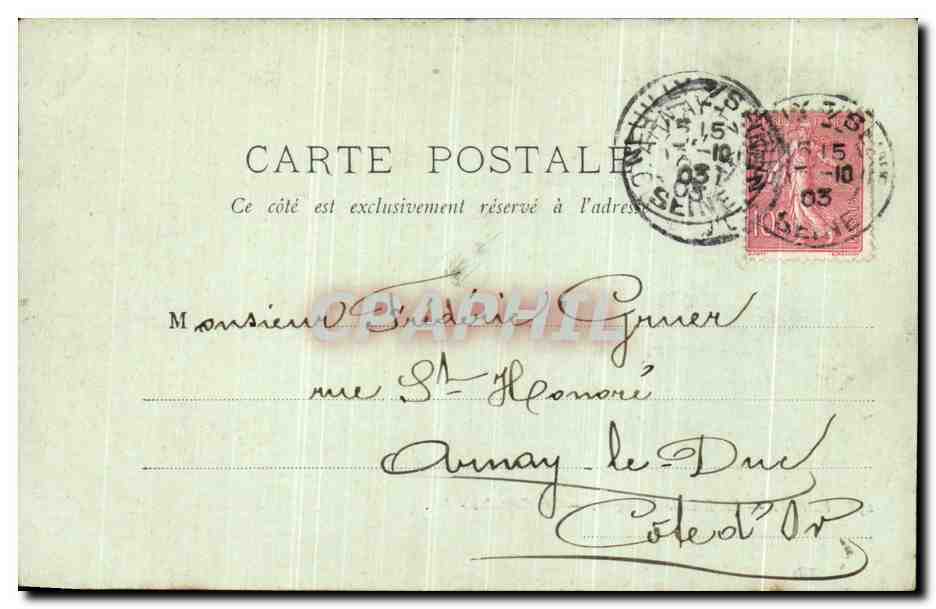 CARTE POSTALE
Ce côté est exclusivement réservé à l'adresse
Monsieur Frédéric Gruer
rue St Honoré
Arnay-le-Duc
Côte d'Or
CPAPHIL
15
10
03
SEINE
15
10
03
SEINE
10